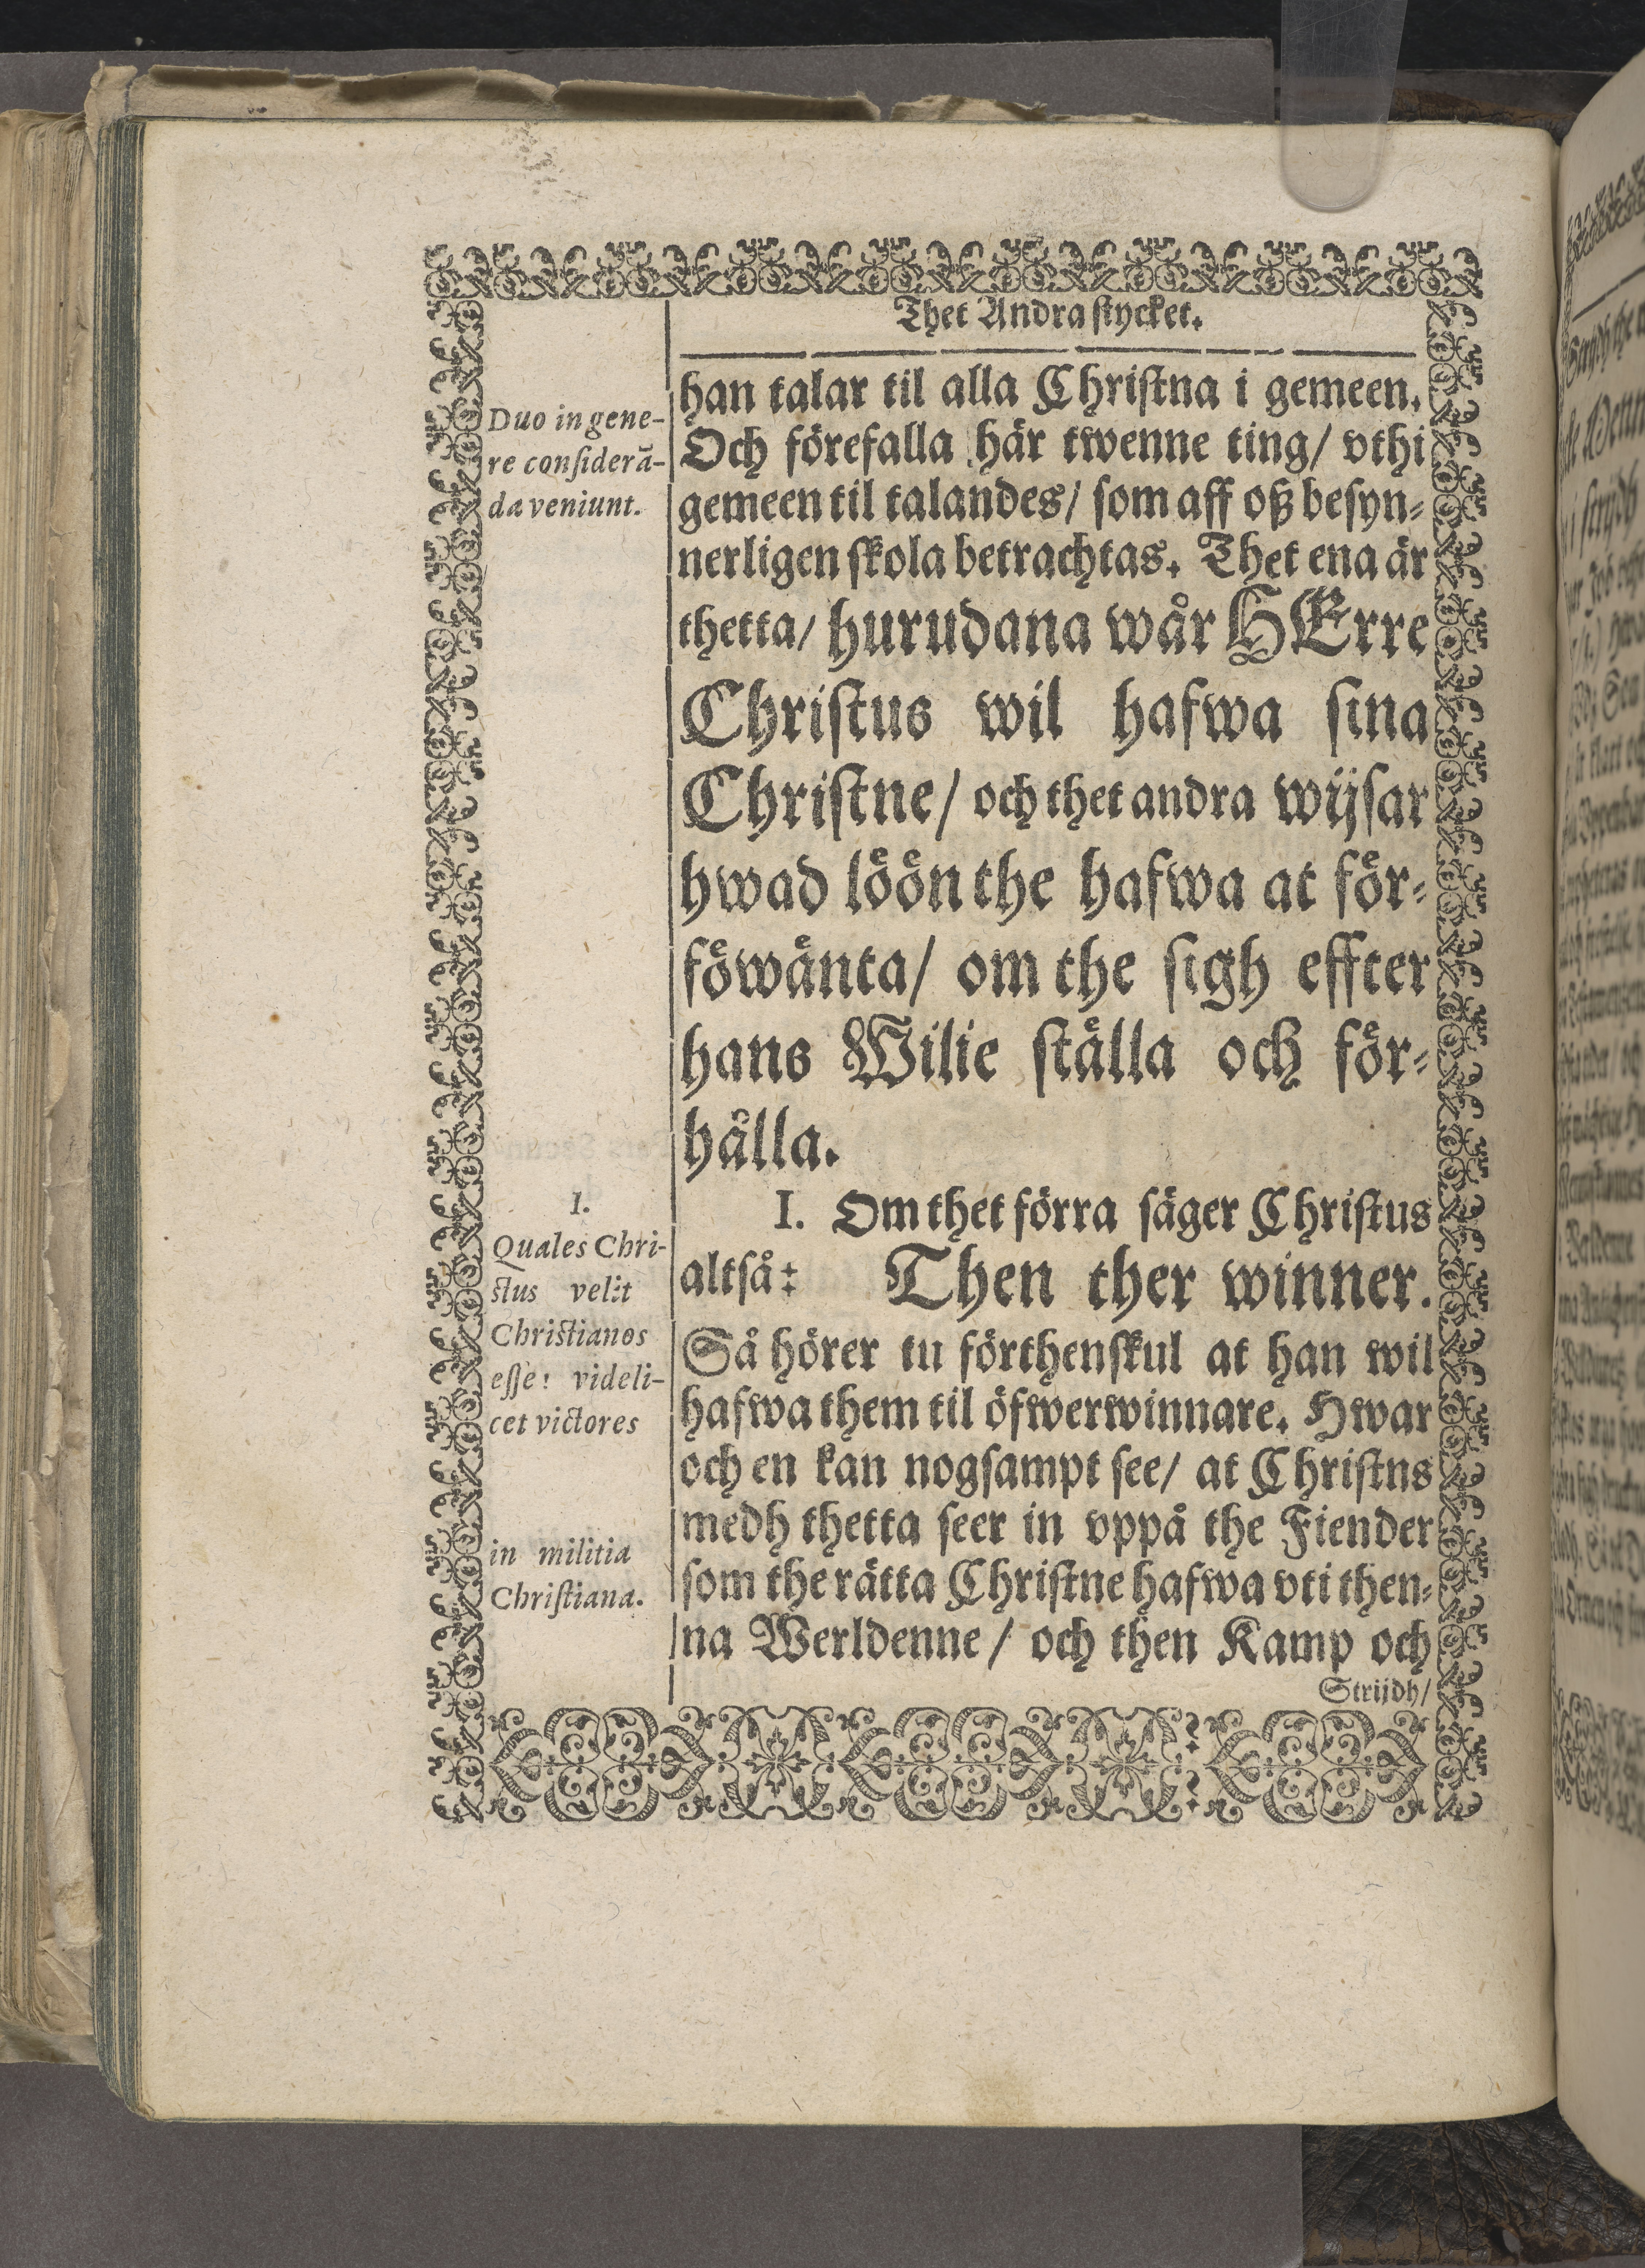 Thet Andra stycket.
han talar til alla Christna i gemeen.
Och förefalla här twenne ting/ vthi
gemeen til talandes/ som aff oß besyn-
nerligen skola betrachtas. Thet ena är
thetta/ hurudana wår HErre
Christus wil hafwa sina
Christne/ och thet andra wijsar
hwad löön the hafwa at för-
föwänta/ om the sigh effter
hans Wilie ställa och för-
hålla.
I. Om thet förra säger Christus
altså: Then ther winner.
Så hörer tu förthenskul at han wil
hafwa them til öfwerwinnare. Hwar
och en kan nogsampt see/ at Christns
medh thetta seer in vppå the Fiender
som the rätta Christne hafwa vti then-
na Werldenne/ och then Kamp och
Strijdh/
Duo in gene-
re considerā-
da veniunt.
I.
Quales Chri-
stus velit
Christianos
esse: videli-
cet victores
in militia
Christiana.